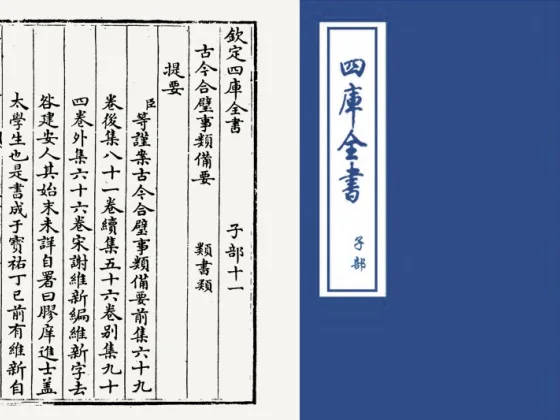 欽定四庫全書 子部十一
古今合璧事類備要 類書類
提要
臣等謹案古今合璧事類備要前集六十九
卷後集八十一卷續集五十六卷别集九十
四卷外集六十六卷宋謝維新編維新字去
咎建安人其始末未詳自署曰膠庠進士蓋
太學生也是書成于寳祐丁巳前有維新自
四庫全書
子部